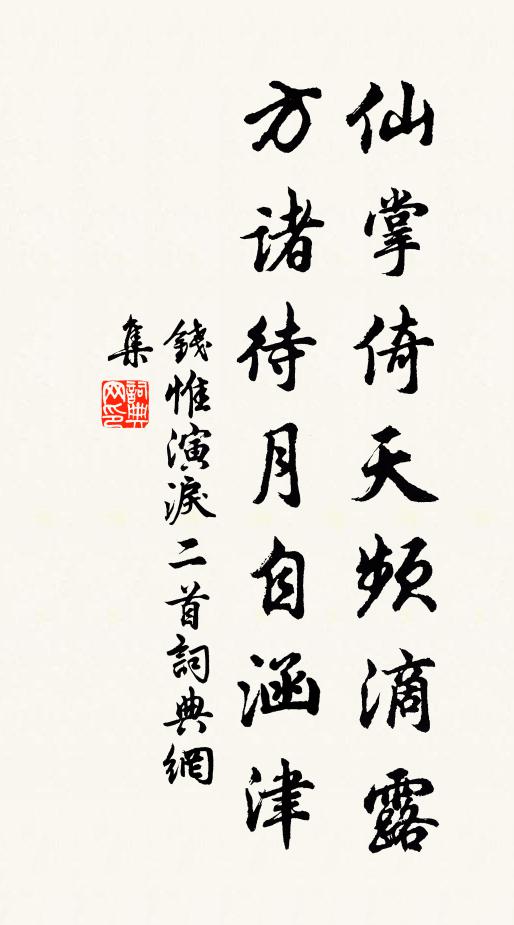 仙掌倚天頻滴露
方诸待月自涵津
錢惟演淚二首詞典網
集
詞典
网印